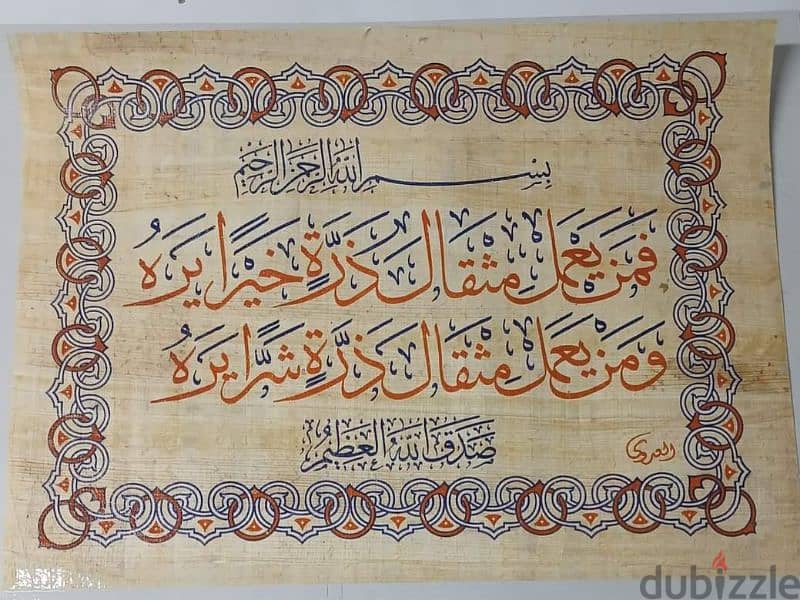 بِسْمِ اللهِ الرَّحْمٰنِ الرَّحِيمِ
فَمَنْ يَعْمَلْ مِثْقَالَ ذَرَّةٍ خَيْرًا يَرَهُ
وَمَنْ يَعْمَلْ مِثْقَالَ ذَرَّةٍ شَرًّا يَرَهُ
صَدَقَ اللهُ الْعَظِيمُ
dubizzle